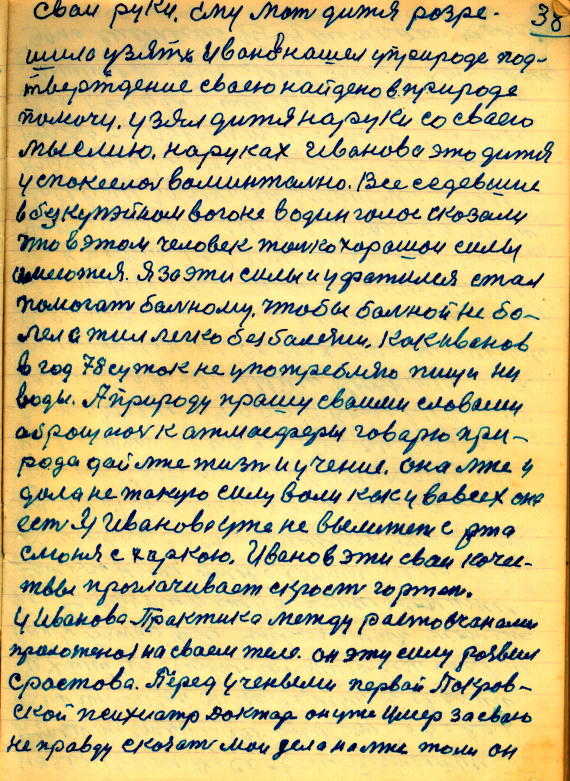 сваи руки. Ему мат дитя розре-
38
шила узять Иванов нашел уприроде под-
тверждение сваею найдено в природе
помочи. узял дитя на руки со сваею
мыслию. на руках Иванова это дитя
успокоелос воминтално. Все седевшие
в безкупэйном вогоне водин голос сказали
что в этом человек толко харашои силы
имеются. Я за эти силы и ухватился стал
помогать балному. чтобы балной не бо-
лел а жил легко без балезни. Как Иванов
в год 78 суток не употребляю пищи ни
воды. А природу прашу сваими словами
аброщаюс к атмасфери говарю при-
рода дай мне жизн и учение. она мне и
дола не такую силу воли как у вовсех она
ест У Иванова уже не вылитает с рта
слюня с харкою. Иванов эти сваи каче-
ствы проглачивает скрость гортан.
У Иванова Практика между растовчанами
праложеноя на сваем теле. он эту силу розвил
с растова. Перед учеными первай Покров-
ской психиатр доктар он уже умер за сваю
не правду скозать мои дела на мне толи он